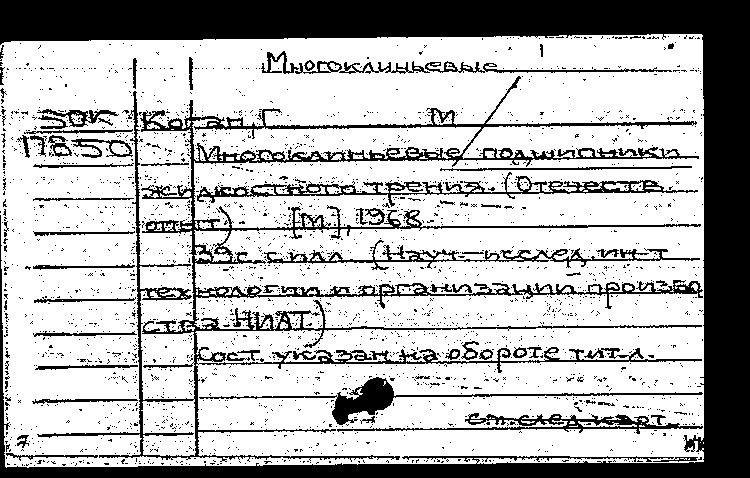 Многоклиньевые
50К Коган, Г М
17850 Многоклиньевые подшипники
жидкостного трения. (Отечеств.
опыт) [М], 1968
39с. с илл. (Науч.-исслед. ин-т
технологии и организации произво
ства. НИАТ)
Сост. указан на обороте тит. л.
см. след. карт.